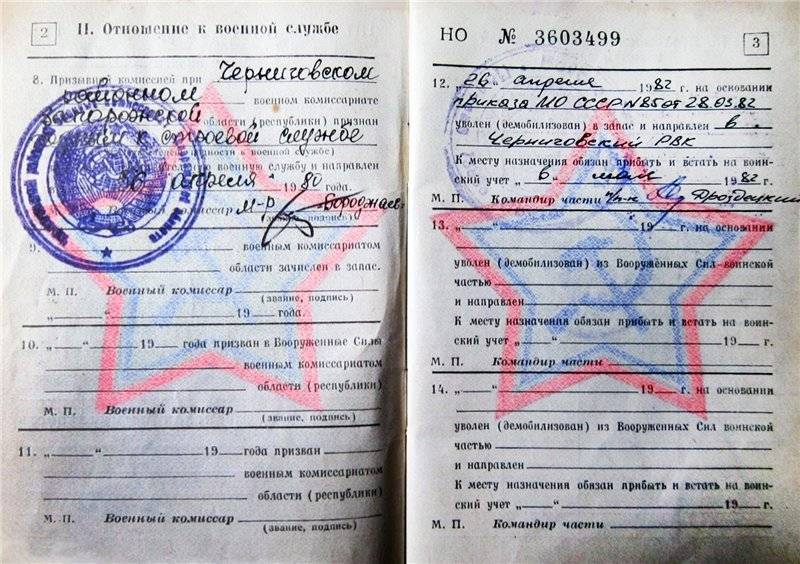 2
II. Отношение к военной службе
8. Призывной комиссией при Черниговском
районном военном комиссариате
Запорожской области (республики) признан
годным к строевой службе
военную службу и направлен
апреля 1980 года.
М. П. Военный комиссар м-р
(звание, подпись)
9.
военным комиссариатом
области зачислен в запас.
М. П. Военный комиссар
(звание, подпись)
„ “ 19 года.
10. „ “ 19 года призван в Вооруженные Силы
военным комиссариатом
области (республики)
М. П. Военный комиссар
(звание, подпись)
11. „ “ 19 года призван
военным комиссариатом
области (республики)
М. П. Военный комиссар
(звание, подпись)
НО № 3603499
3
12. „26“ апреля 1982 г. на основании
приказа МО СССР №85 от 28.03.82
уволен (демобилизован) в запас и направлен в
Черниговский РВК
К месту назначения обязан прибыть и встать на воин-
ский учет „6“ мая 1982 г.
М. П. Командир части п/п-к Дроздецкий
13. „ “ 19 г. на основании
уволен (демобилизован) из Вооружённых Сил воинской
частью
и направлен
К месту назначения обязан прибыть и встать на воин-
ский учет „ “ 19 г.
М. П. Командир части
14. „ “ 19 г. на основании
уволен (демобилизован) из Вооруженных Сил воинской
частью
и направлен
К месту назначения обязан прибыть и встать на воин-
ский учет „ “ 19 г.
М. П. Командир части